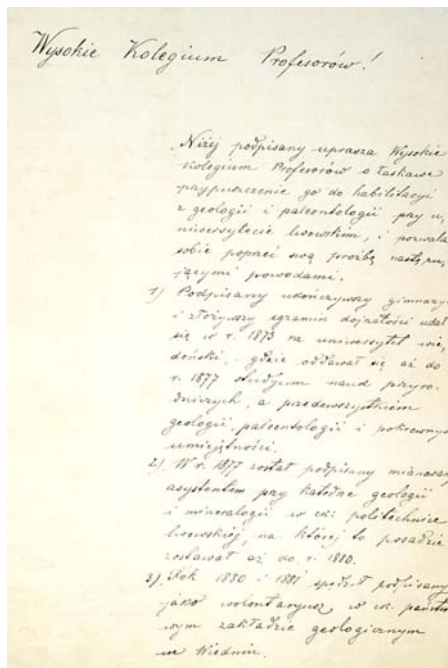 Wysokie Kolegium Profesorów!
Niżej podpisany uprasza Wysokie
Kolegium Profesorów o łaskawe
przypuszczenie go do habilitacyi
z geologii i paleontologii przy u,
niwersytecie lwowskim, i pozwala
sobie poprzeć swą prośbę nastę,pu,
jącymi powodami.
1) Podpisany ukończywszy gimnazyu
i złożywszy egzamin dojrzałości udał
się w r. 1873 na uniwersytet wie,
deński, gdzie oddawał się aż do
r. 1877 studyum nauk przyro,
dniczych, a przedewszystkiem
geologii, paleontologii i pokrewnych
umiejętności.
2). W r. 1877 został podpisany mianowany
asystentem przy katedrze geologii
i mineralogii w ck. politechnice
lwowskiej, na której to posadzie
zostawał aż do r. 1880.
3). Rok 1880 i 1881 spędził podpisany
jako wolontaryusz w ck. państwo
wym zakładzie geologicznym
we Wiedniu.